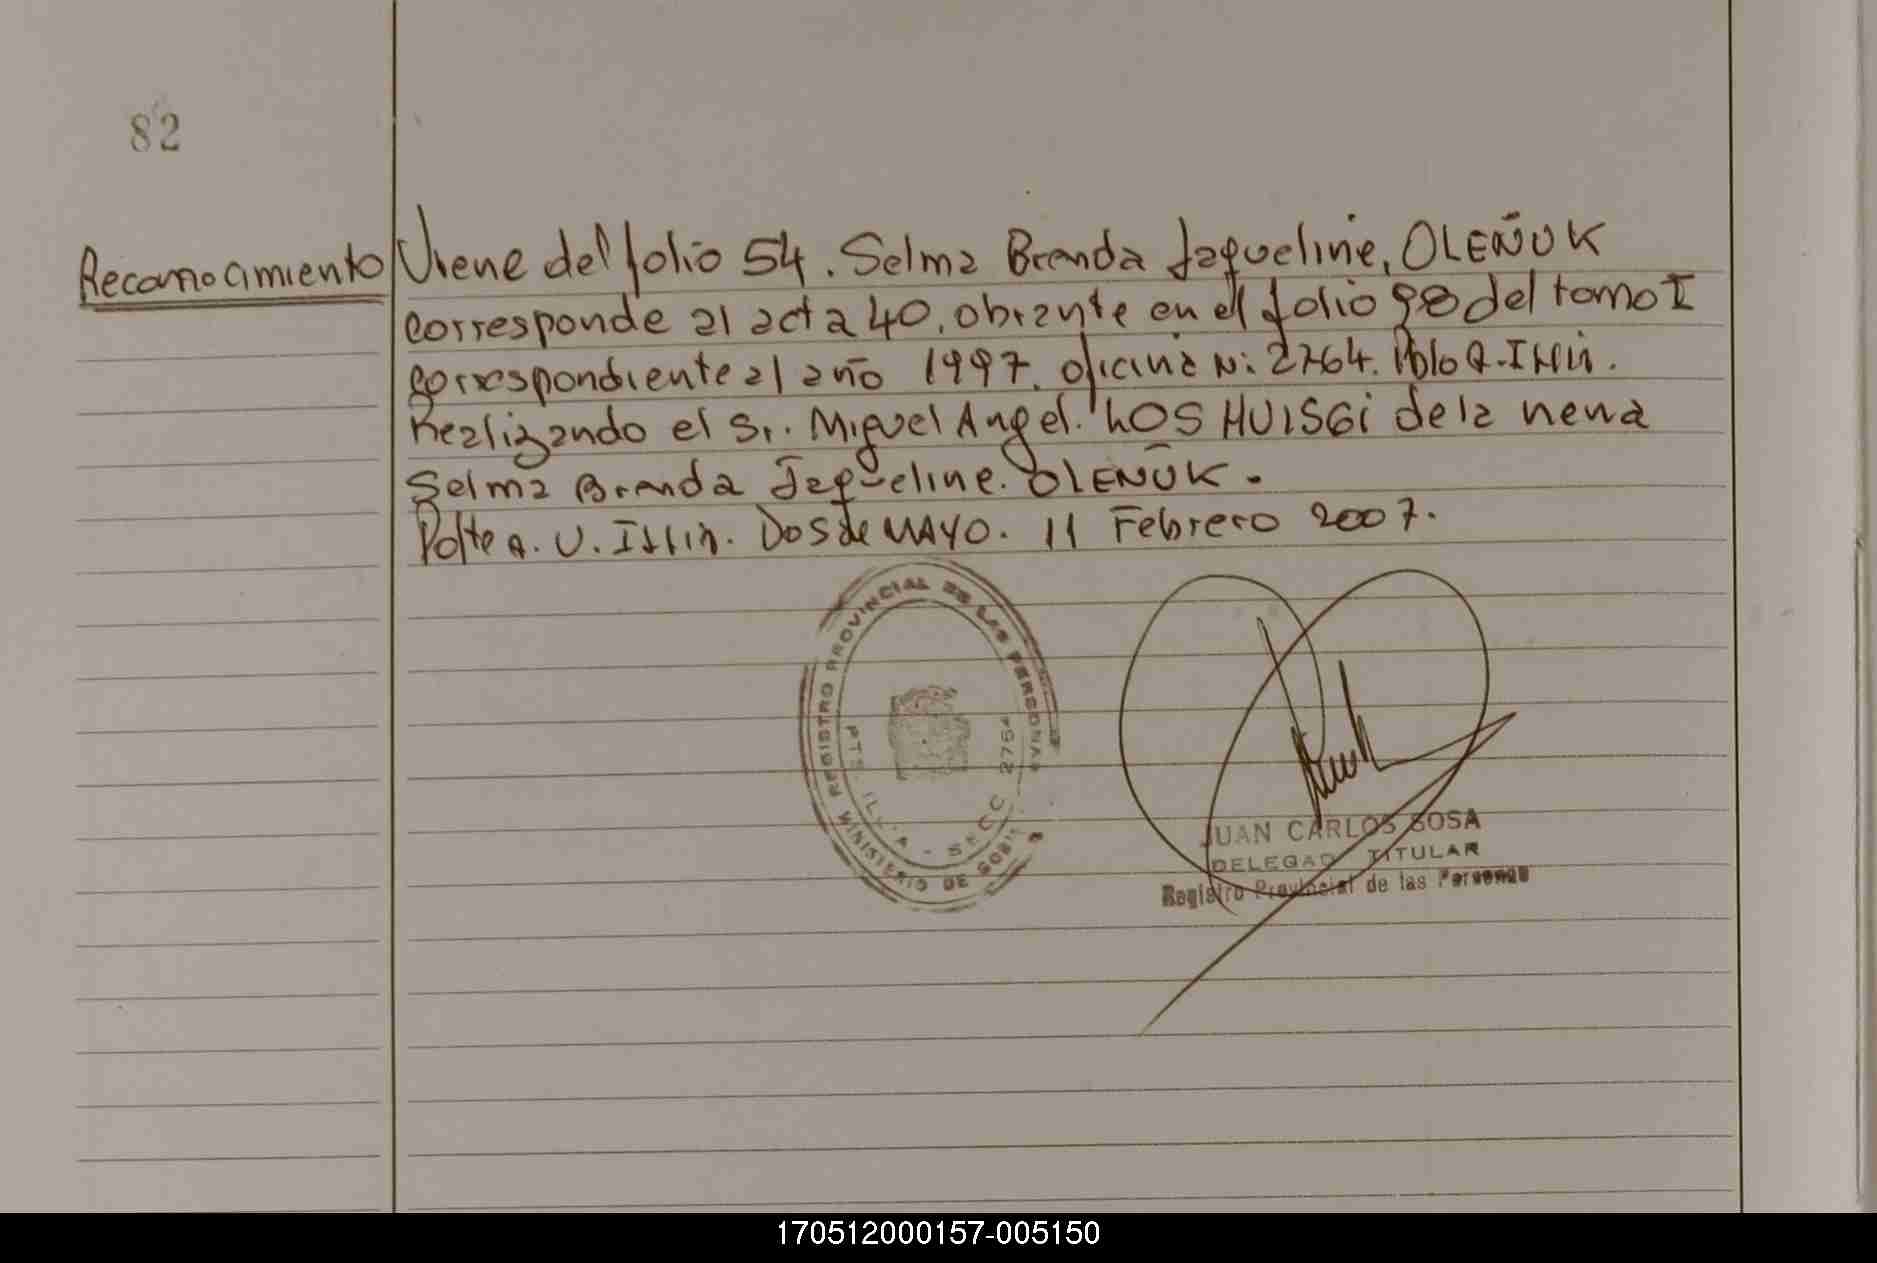 82
Recamocimiento
Viene del folio 54. Selma Brenda Jaqueline, OLEÑUK
corresponde al acta 40, obrante en el folio 98 del tomo I
correspondiente al año 1997. oficina N: 2764.
Realizando el Sr. Miguel Angel. LOS HUISGi de la nena
Selma Brenda Jaqueline. OLEÑUK.
Pdte A. U. Illia. Dos de MAYO. 11 Febrero 2007.
REGISTRO PROVINCIAL DE LAS PERSONAS
MINISTERIO DE
SECC 2764
JUAN CARLOS SOSA
DELEGAD TITULAR
Registro Provincial de las Personas
170512000157-005150